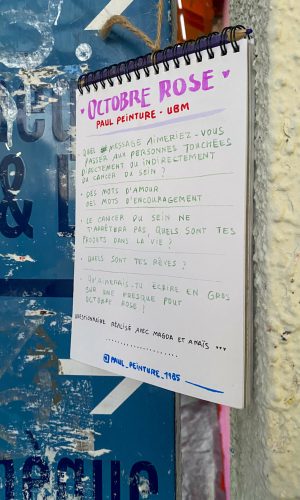 OCTOBRE ROSE
PAUL PEINTURE - UBM
QUEL MESSAGE AIMERIEZ-VOUS
PASSER AUX PERSONNES TOUCHÉES
DIRECTEMENT OU INDIRECTEMENT
DU CANCER DU SEIN ?
. DES MOTS D'AMOUR
DES MOTS D'ENCOURAGEMENT
. LE CANCER DU SEIN NE
T'ARRÊTERA PAS, QUELS SONT TES
PROJETS DANS LA VIE ?
. QUELS SONT TES RÊVES ?
. QU'AIMERAIS-TU ÉCRIRE EN GROS
SUR UNE FRESQUE POUR
OCTOBRE ROSE !
QUESTIONNAIRE RÉALISÉ AVEC MAGDA ET ANAÏS ***
@PAUL_PEINTURE_1985